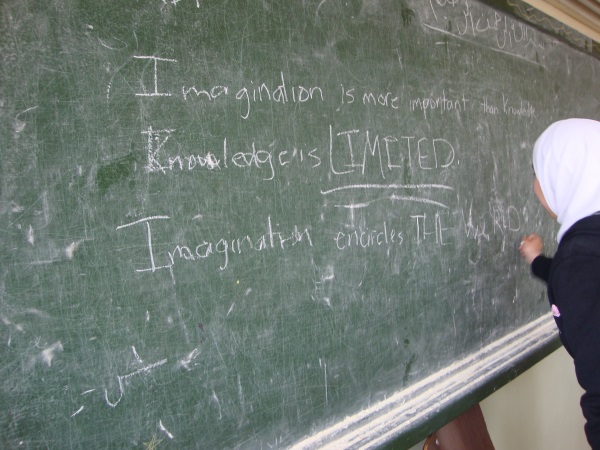 Imagination is more important than Knowledge
Knowledge is LIMITED.
Imagination encircles THE WORLD